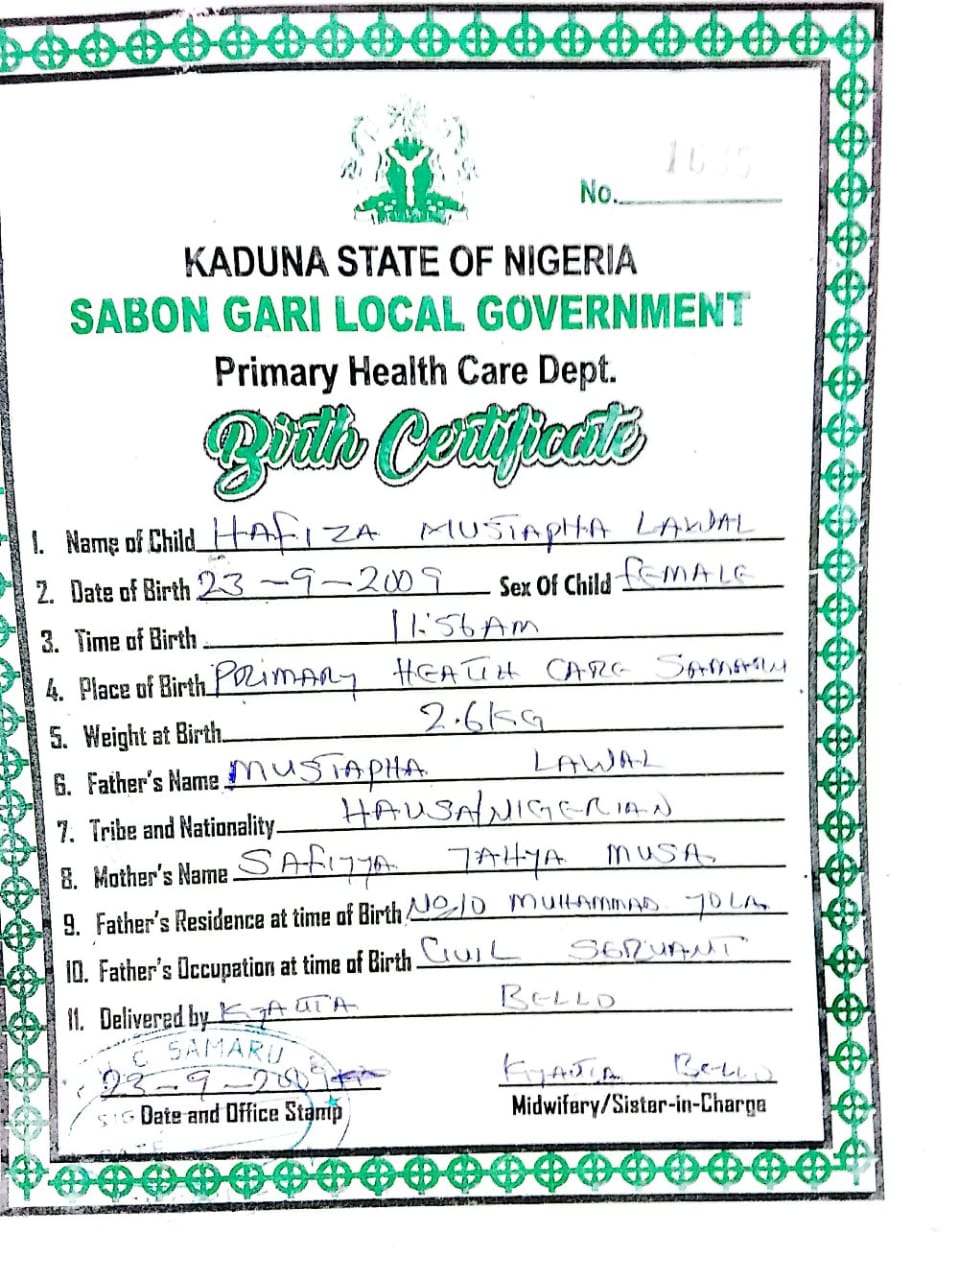 No.
KADUNA STATE OF NIGERIA
SABON GARI LOCAL GOVERNMENT
Primary Health Care Dept.
Birth Certificate
1. Name of Child HAFIZA MUSTAPHA LAWAL
2. Date of Birth 23-9-2009 Sex Of Child FEMALE
3. Time of Birth 11:56AM
4. Place of Birth PRIMARY HEALTH CARE SAMARU
5. Weight at Birth 2.6KG
6. Father's Name MUSTAPHA LAWAL
7. Tribe and Nationality HAUSA/NIGERIAN
8. Mother's Name SAFIYYA YAHYA MUSA
9. Father's Residence at time of Birth NO 10 MUHAMMAD YOLA
10. Father's Occupation at time of Birth CIVIL SERVANT
11. Delivered by KYAUTA BELLO
C SAMARU
23-9-2009
KYAUTA BELLO
Date and Office Stamp
Midwifery/Sister-in-Charge